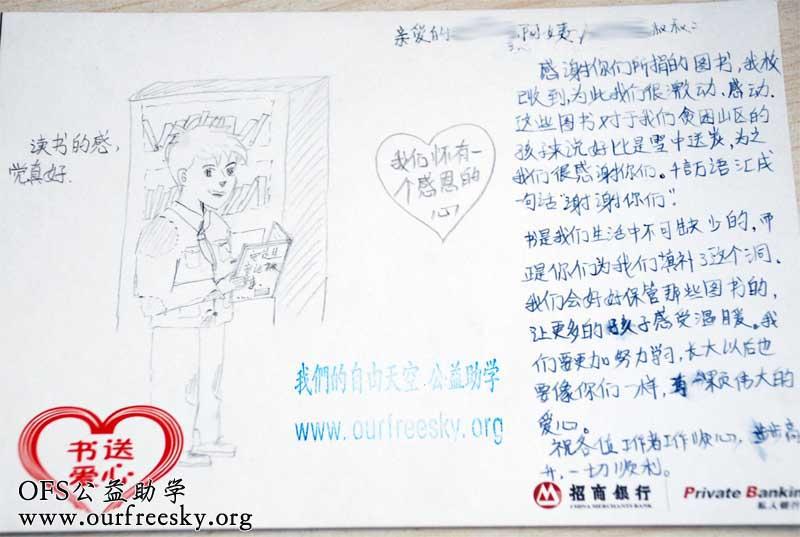 亲爱的 阿姨, 叔叔:
感谢你们所捐的图书,我校
已收到,为此我们很激动、感动.
这些图书对于我们贫困山区的
孩子来说好比是雪中送炭,为之
我们很感谢你们。千言万语汇成
一句话“谢谢你们”.
书是我们生活中不可缺少的,而
正是你们为我们填补了这个洞.
我们会好好保管那些图书的,
让更多的孩子感受温暖。我
们要更加努力学习,长大以后也
要像你们一样,有一颗伟大的
爱心。
祝各位工作者工作顺心,步步高
升,一切顺利。
读书的感
觉真好.
我们怀有一
个感恩的
心
我們的自由天空.公益助学
www.ourfreesky.org
书送
爱心
OFS公益助学
www.ourfreesky.org
招商銀行
CHINA MERCHANTS BANK
Private Bankin
私人銀行